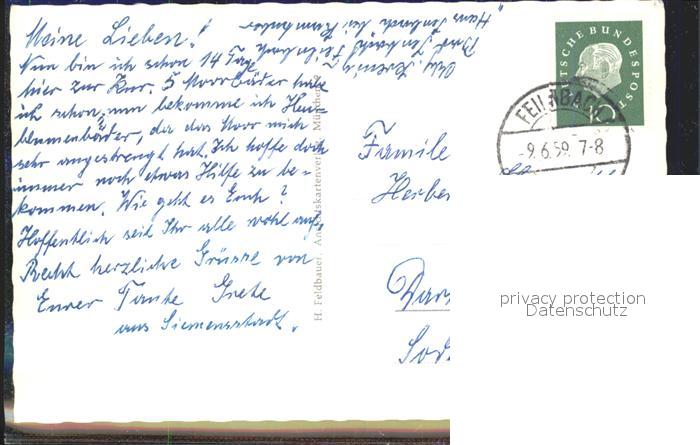 Meine Lieben!
Nun bin ich schon 14 Tage
hier zur Kur. 5 Moorbäder habe
ich schon, nun bekomme ich Heu-
blumenbäder, da das Moor mich
sehr angestrengt hat. Ich hoffe doch
immer noch etwas Hilfe zu be-
kommen. Wie geht es Euch?
Hoffentlich seit Ihr alle wohl auf.
Recht herzliche Grüsse von
Eurer Tante Grete
aus Siemensstadt.
H. Feldbauer, Ansichtskartenverlag, München
DEUTSCHE BUNDESPOST
10
FEILNBACH
-9.6.59. 7-8
Familie
Herbe
Dars
Sod
privacy protection
Datenschutz